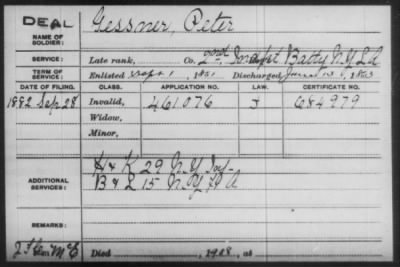 DEAL
Gessner, Peter
NAME OF SOLDIER:
SERVICE: Late rank, Co. 2nd, Indpt Batty N.Y. L A
TERM OF SERVICE: Enlisted 1861 Discharged June 13, 1863
DATE OF FILING. CLASS. APPLICATION NO. LAW. CERTIFICATE NO.
1882 Sep. 28 Invalid, 461.076 J 684979
Widow,
Minor,
ADDITIONAL SERVICES:
H & K 29 N.Y. Inf-
B & L 15 N.Y. H A
REMARKS:
Died , 1908, at